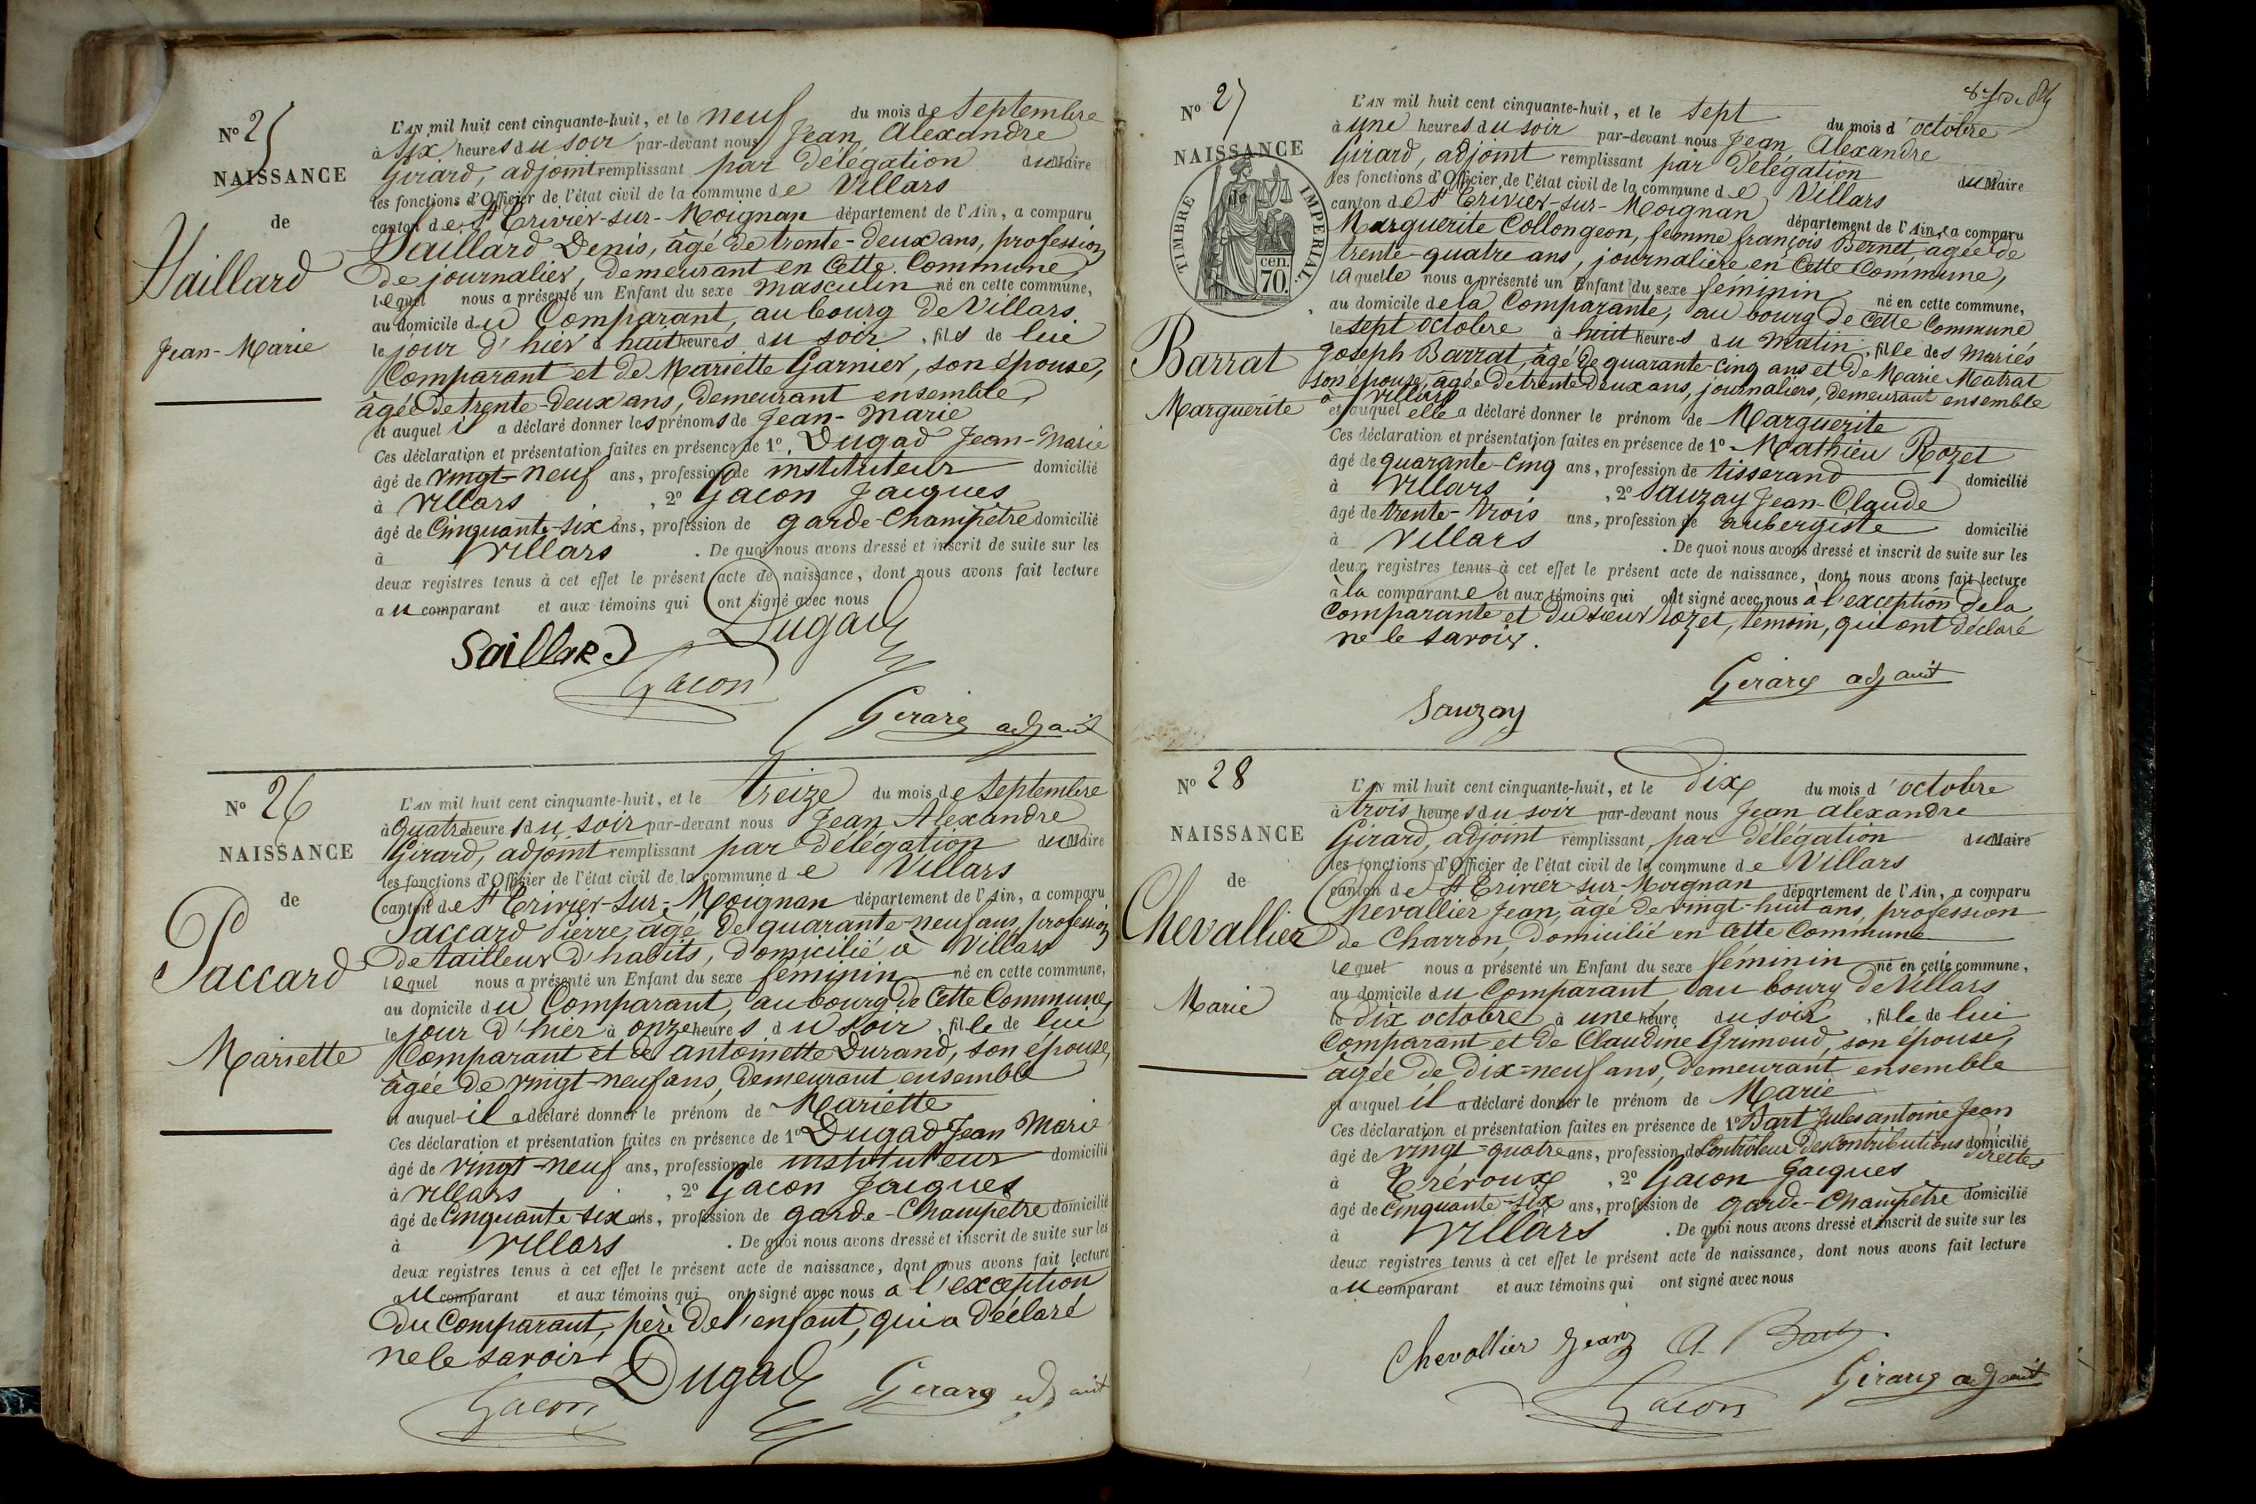 Nº 25
NAISSANCE
de
Saillard
Jean-Marie
L'AN mil huit cent cinquante-huit, et le neuf du mois de Septembre
à Six heures du soir par-devant nous Jean Alexandre
Girard, adjoint remplissant par délégation du Maire
les fonctions d'Officier de l'état civil de la commune de Villars
canton de St Trivier-sur-Moignan département de l'Ain, a comparu
Saillard Denis, âgé de trente-deux ans, profession
de journalier, demeurant en cette Commune,
lequel nous a présenté un Enfant du sexe masculin né en cette commune,
au domicile du Comparant, au bourg de Villars,
le jour d'hier à huit heures du soir, fils de lui
Comparant et de Mariette Garnier, son épouse,
âgée de trente-deux ans, demeurant ensemble,
et auquel il a déclaré donner les prénoms de Jean-Marie
Ces déclaration et présentation faites en présence de 1º. Dugad Jean-Marie
âgé de vingt-neuf ans, profession de instituteur domicilié
à Villars, 2º Gacon Jacques
âgé de Cinquante-six ans, profession de garde-Champêtre domicilié
à Villars. De quoi nous avons dressé et inscrit de suite sur les
deux registres tenus à cet effet le présent acte de naissance, dont nous avons fait lecture
au comparant et aux témoins qui ont signé avec nous
Saillard Dugad
Gacon
Girard adjoint
Nº 26
NAISSANCE
de
Paccard
Mariette
L'AN mil huit cent cinquante-huit, et le treize du mois de Septembre
à quatre heures du soir par-devant nous Jean Alexandre
Girard, adjoint remplissant par délégation du Maire
les fonctions d'Officier de l'état civil de la commune de Villars
canton de St Trivier-sur-Moignan département de l'Ain, a comparu
Paccard Pierre, âgé de quarante-neuf ans, profession
de tailleur d'habits, domicilié à Villars
lequel nous a présenté un Enfant du sexe féminin né en cette commune,
au domicile du Comparant, au bourg de cette Commune,
le jour d'hier à onze heures du soir, fille de lui
Comparant et de antoinette Durand, son épouse,
âgée de vingt-neuf ans, demeurant ensemble
et auquel il a déclaré donner le prénom de Mariette
Ces déclaration et présentation faites en présence de 1º Dugad Jean Marie
âgé de vingt-neuf ans, profession de instituteur domicilié
à Villars, 2º Gacon Jacques
âgé de Cinquante six ans, profession de garde-Champêtre domicilié
à Villars. De quoi nous avons dressé et inscrit de suite sur les
deux registres tenus à cet effet le présent acte de naissance, dont nous avons fait lecture
au comparant et aux témoins qui ont signé avec nous à l'exception
du Comparant, père de l'enfant, qui a déclaré
ne le savoir
Dugad
Gacon Girard adjoint
Nº 27
NAISSANCE
de
TIMBRE IMPERIAL
70 cen.
Barrat
Marguerite
L'AN mil huit cent cinquante-huit, et le sept du mois d'octobre
à une heures du soir par-devant nous Jean Alexandre
Girard, adjoint remplissant par délégation du Maire
les fonctions d'Officier de l'état civil de la commune de Villars
canton de St Trivier-sur-Moignan département de l'Ain, a comparu
Marguerite Collongeon, femme françois Bernet, agée de
trente-quatre ans, journalière en Cette Commune,
laquelle nous a présenté un Enfant du sexe féminin né en cette commune,
au domicile de la Comparante, au bourg de Cette Commune
le sept octobre à huit heures du matin, fille des mariés
Joseph Barrat, âgé de quarante-cinq ans et de Marie Matrat
son épouse, agée de trente deux ans, journaliers, demeurant ensemble
à Villars
et auquel elle a déclaré donner le prénom de Marguerite
Ces déclaration et présentation faites en présence de 1º Mathieu Rozet
âgé de quarante-cinq ans, profession de tisserand domicilié
à Villars, 2º Sauzay Jean-Claude
âgé de trente-trois ans, profession de aubergiste domicilié
à Villars. De quoi nous avons dressé et inscrit de suite sur les
deux registres tenus à cet effet le présent acte de naissance, dont nous avons fait lecture
à la comparante et aux témoins qui ont signé avec nous à l'exception de la
Comparante et du sieur Rozet, témoin, qui ont déclaré
ne le savoir.
Girard adjoint
Sauzay
Nº 28
NAISSANCE
de
Chevallier
Marie
L'AN mil huit cent cinquante-huit, et le Dix du mois d'octobre
à trois heures du soir par-devant nous Jean alexandre
Girard, adjoint remplissant par délégation du Maire
les fonctions d'Officier de l'état civil de la commune de Villars
canton de St Trivier-sur-Moignan département de l'Ain, a comparu
Chevallier Jean, âgé de vingt-huit ans, profession
de Charron, domicilié en cette Commune
lequel nous a présenté un Enfant du sexe féminin né en cette commune,
au domicile du Comparant, au bourg de Villars
le dix octobre à une heure du soir, fille de lui
Comparant et de Claudine Grimoud, son épouse,
âgée de dix-neuf ans, demeurant ensemble
et auquel il a déclaré donner le prénom de Marie
Ces déclaration et présentation faites en présence de 1º Bart Jules antoine Jean
âgé de vingt-quatre ans, profession de Contrôleur des contributions directes domicilié
à Trévoux, 2º Gacon Jacques
âgé de Cinquante-six ans, profession de garde-Champêtre domicilié
à Villars. De quoi nous avons dressé et inscrit de suite sur les
deux registres tenus à cet effet le présent acte de naissance, dont nous avons fait lecture
au comparant et aux témoins qui ont signé avec nous
Chevallier Jean A. Bart
Gacon Girard adjoint